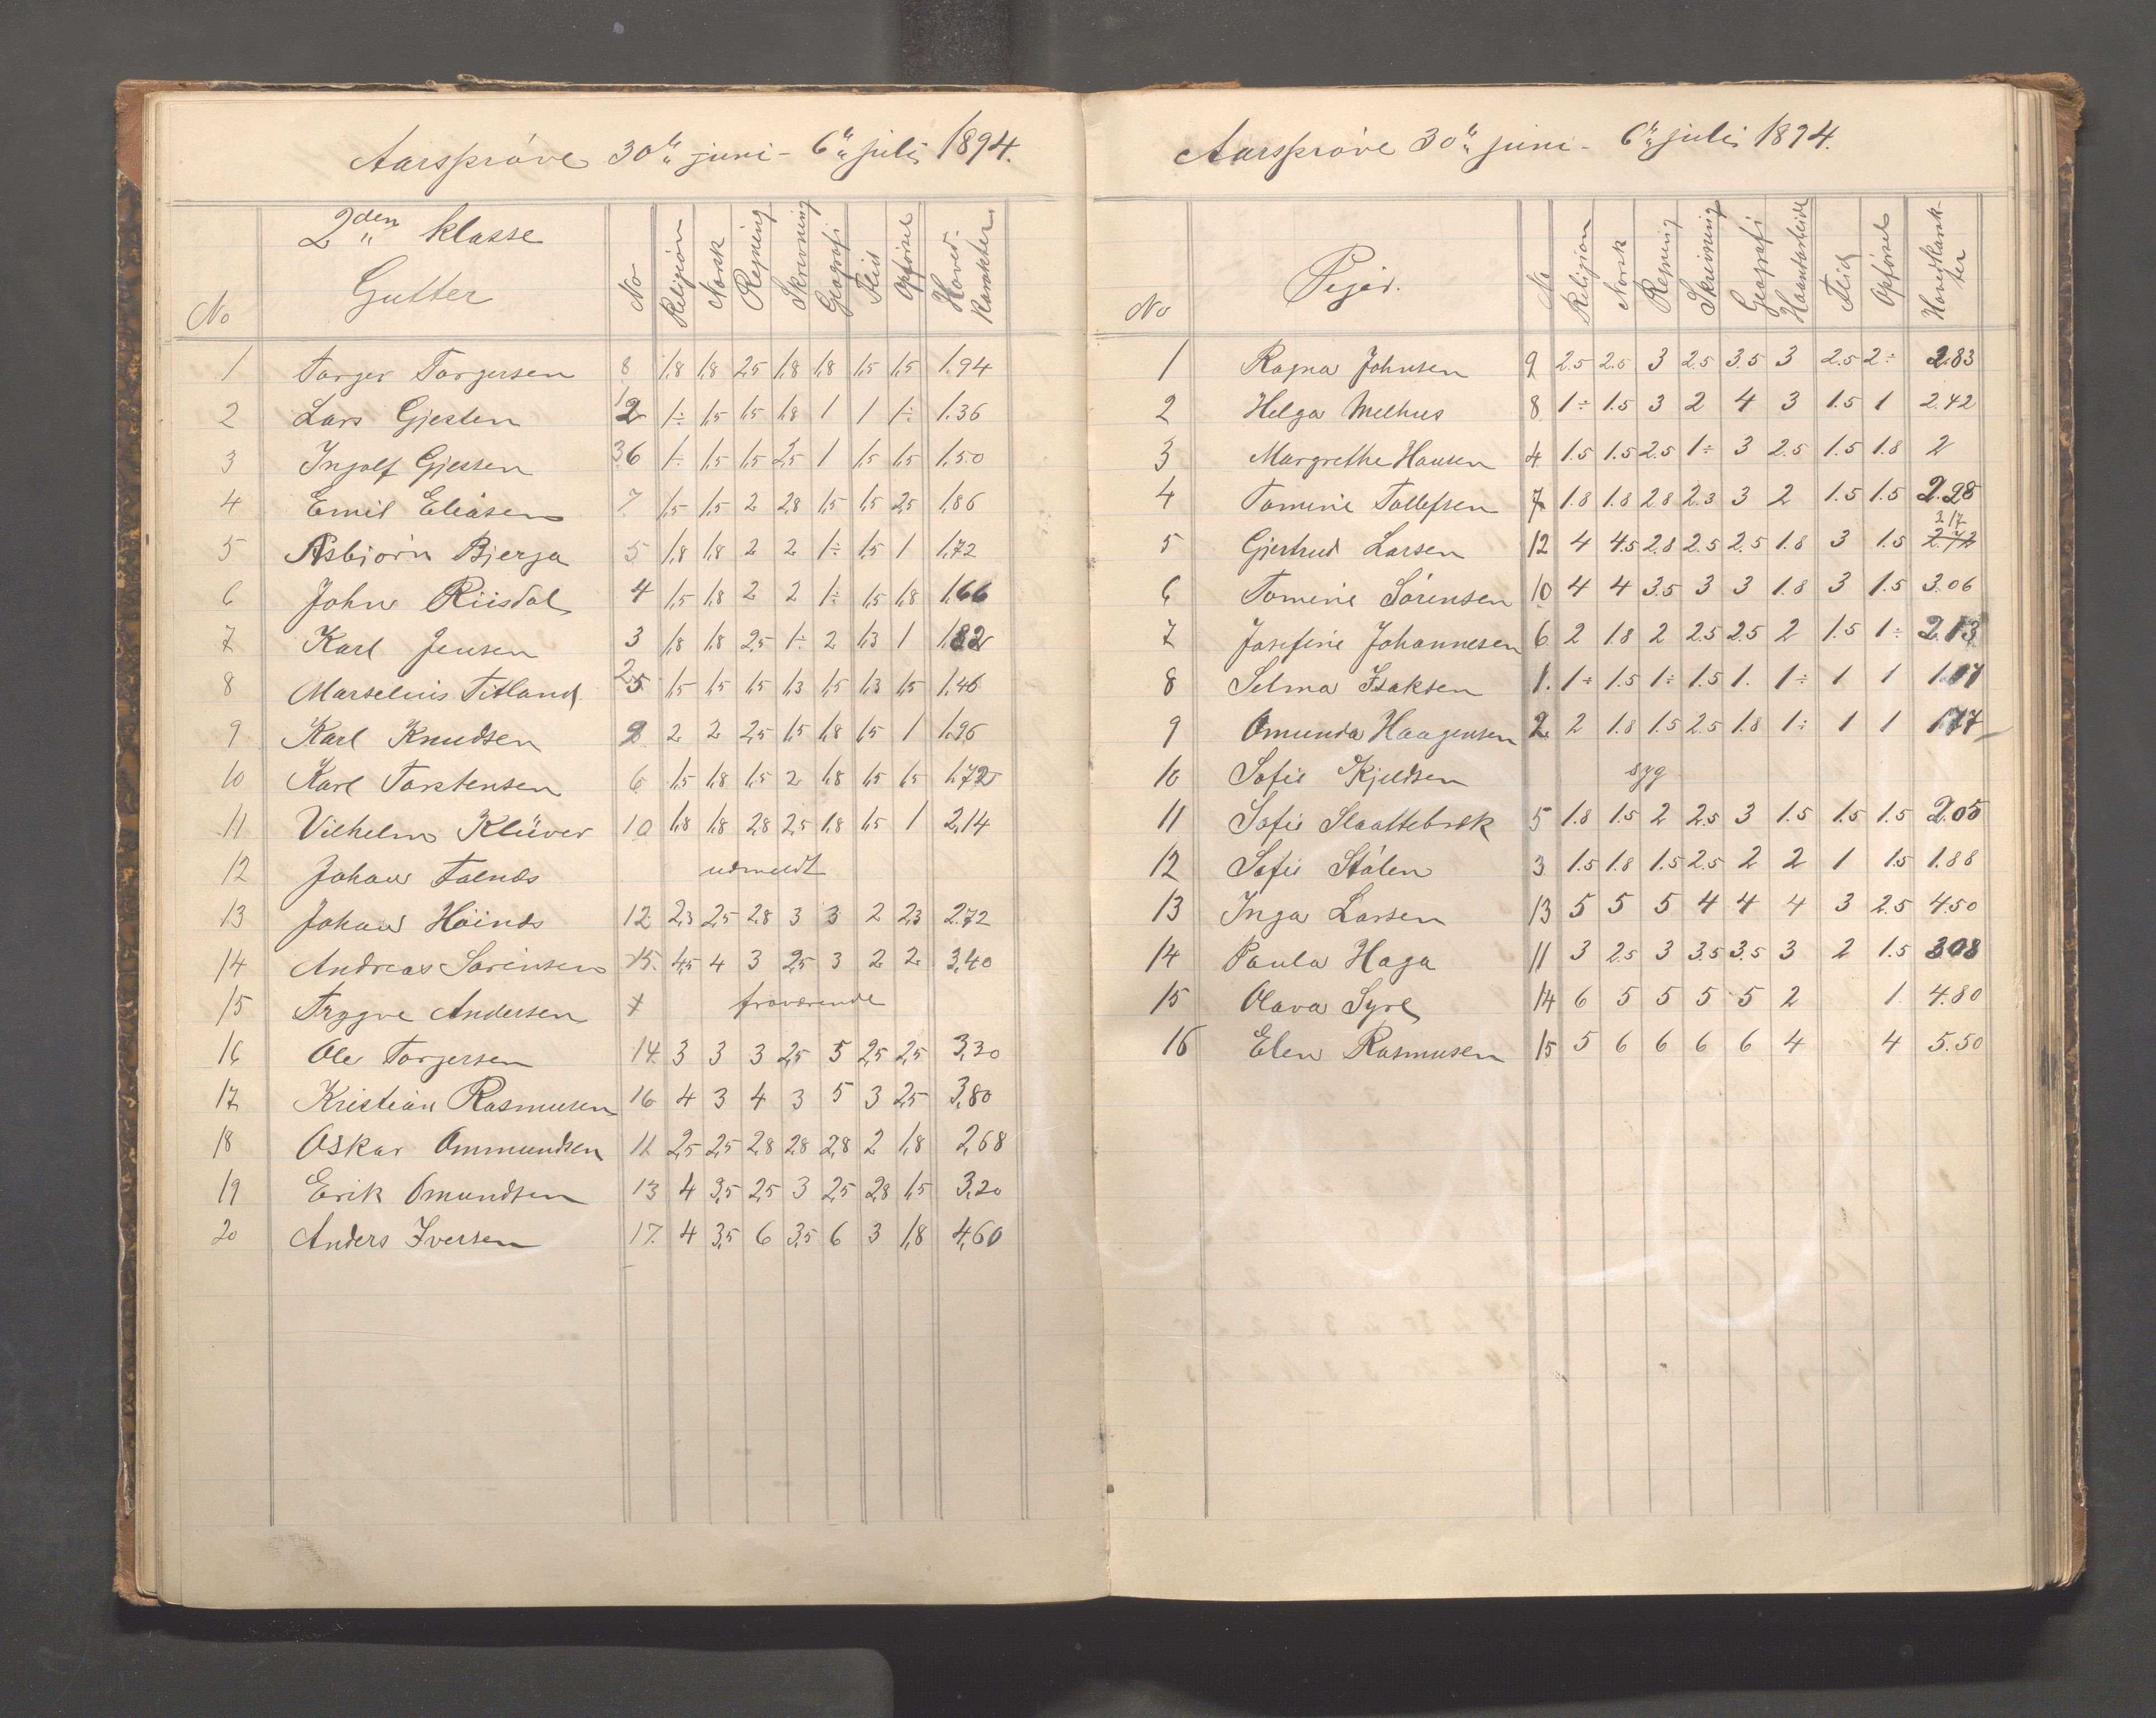 Aarsprøve 30te juni - 6te juli 1894.
2den klasse
No Gutter No Religion Norsk Regning Skrivning Geografi Flid Opførsel Hoved-Karakter
1 Torger Torgersen 8 1,8 1,8 2,5 1,8 1,8 1,5 1,5 1.94
2 Lars Gjesten 1 ÷ 1,5 1,5 1,8 1 1 1÷ 1.36
3 Ingolf Gjessen 1÷ 1,5 1,5 2,5 1 1,5 1,5 1,50
4 Emil Eliasen 7 1,5 1,5 2 2,8 1,5 1,5 2,5 1,86
5 Asbjørn Bjerga 5 1,8 1,8 2 2 1÷ 1,5 1 1,72
6 John Riisdal 4 1,5 1,8 2 2 1÷ 1,5 1,8 1,66
7 Karl Jensen 3 1,8 1,8 2,5 1÷ 2 1,3 1 1,82
8 Marselius Titland 1,5 1,5 1,5 1,3 1,5 1,3 1,5 1,46
9 Karl Knudsen 9 2 2 2,5 1,5 1,8 1,5 1 1.96
10 Karl Torstensen 6 1,5 1,8 1,5 2 1,8 1,5 1,5 1,72
11 Vilhelm Klüver 10 1,8 1,8 2,8 2,5 1,8 1,5 1 2,14
12 Johan udmeldt
13 Johan Høinds 12 2,3 2,5 2,8 3 3 2 2,3 2.72
14 Andreas Sørensen 15. 4,5 4 3 2,5 3 2 2 3,40
15 Trygve Andersen + fraværende
16 Ole Torgersen 14. 3 3 3 2,5 5 2,5 2,5 3,30
17 Kristian Rasmusen 16 4 3 4 3 5 3 2,5 3,80
18 Oskar Ommundsen 11 2,5 2,5 2,8 2,8 2,8 2 1,8 2,68
19 Erik Omundsen 13 4 3,5 2,5 3 2,5 2,8 1,5 3,20
20 Anders Iversen 17. 4 3,5 6 3,5 6 3 1,8 4,60
Aarsprøve 30te juni - 6te juli 1894.
No Piger. No Religion Norsk Regning Skrivning Geografi Haandarbeide Flid Opførsel Hovedkarak-ter
1 Ragna Johnsen 9 2.5 2.5 3 2.5 3.5 3 2.5 2÷ 2.83
2 Helga Melhus 8 1÷ 1.5 3 2 4 3 1.5 1 2.42
3 Margrethe Hansen 4 1.5 1.5 2.5 1÷ 3 2.5 1.5 1.8 2
4 Tomine Tollefsen 7 1.8 1.8 2.8 2.3 3 2 1.5 1.5 2.28
5 Gjertrud Larsen 12 4 4.5 2.8 2.5 2.5 1.8 3 1.5 2.72 3.17
6 Tomine Sørensen 10 4 4 3.5 3 3 1.8 3 1.5 3.06
7 Josefine Johannesen 6 2 1.8 2 2.5 2.5 2 1.5 1÷ 2.13
8 Selma Isaksen 1. 1÷ 1.5 1÷ 1.5 1. 1÷ 1 1 1.17
9 Omunda Haagensen 2 2 1.8 1.5 2.5 1.8 1÷ 1 1 1.77
10 Sofie Kjeldsen syg
11 Sofie Slaattebrek 5 1.8 1.5 2 2.5 3 1.5 1.5 1.5 2.05
12 Sofie Stølen 3 1.5 1.8 1.5 2.5 2 2 1 1.5 1.88
13 Inga Larsen 13 5 5 5 4 4 4 3 2.5 4.50
14 Paula Haga 11 3 2.5 3 3.5 3.5 3 2 1.5 3.08
15 Olava Syre 14 6 5 5 5 5 2 1. 4.80
16 Elen Rasmusen 15 5 6 6 6 6 4 4 5.50